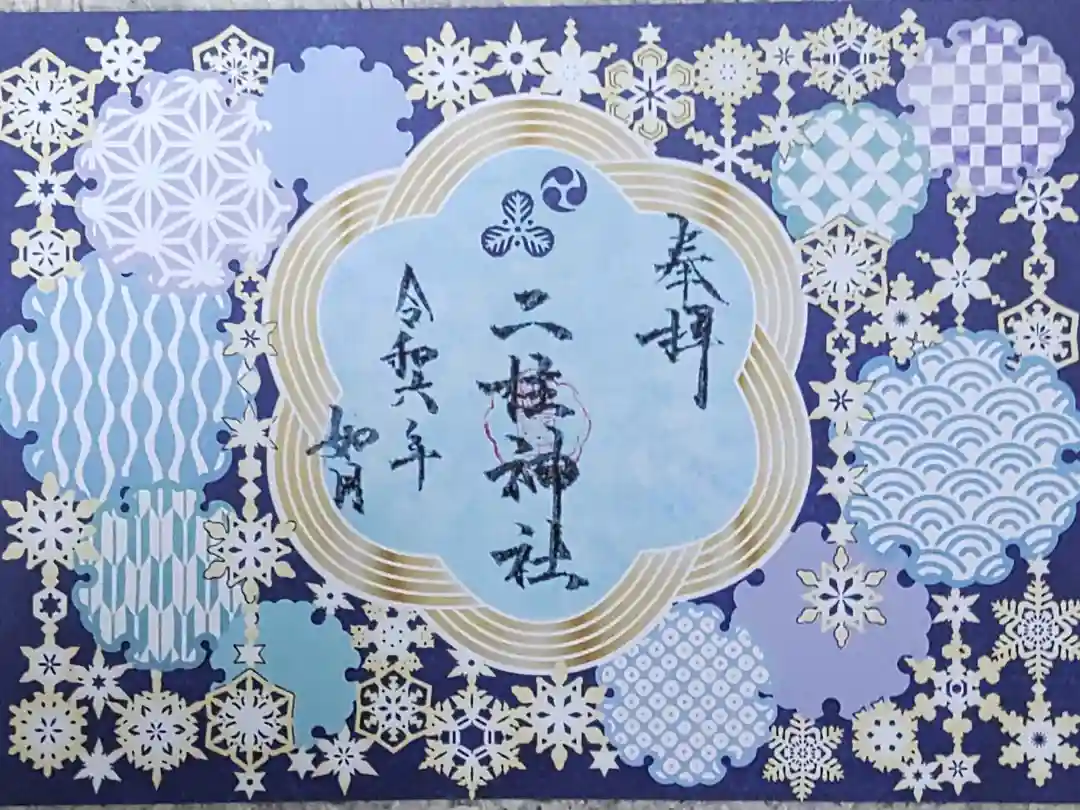 奉拝
二柱神社
令和六年
如月